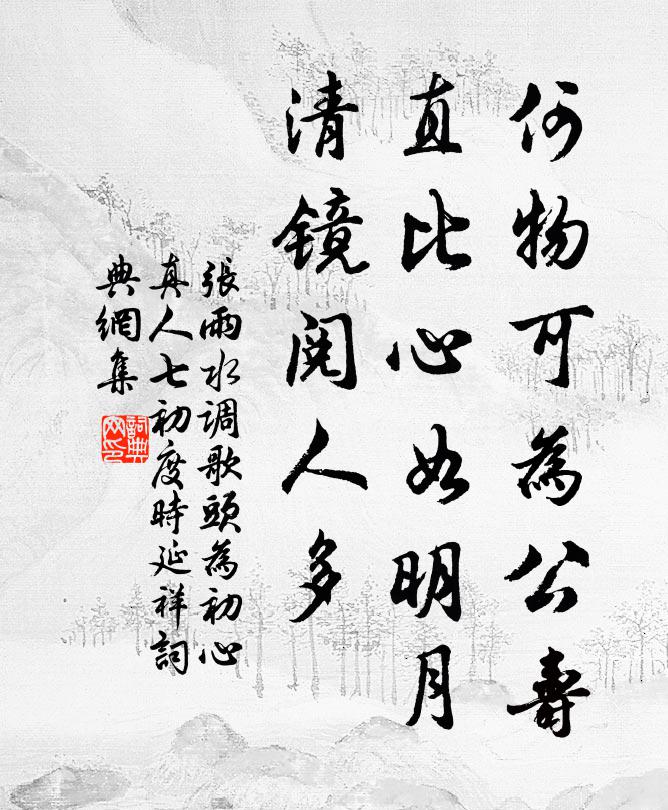 何物可為公壽
直比心如明月
清鏡閱人多
張雨水调歌頭為初心
真人七初度時延祥詞
典網集
詞典
网印